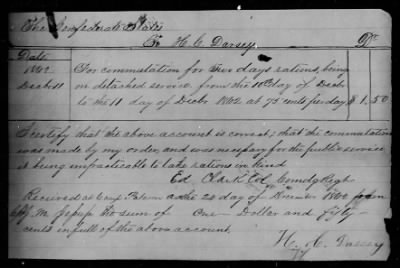 The Confederate States
To H. C. Darsey Dr
Date
1862 For commutation for Two days rations, being
Decbr 11 on detached service, from the 10th day of Decbr
to the 11 day of Decbr 1862 at 75 cents per day $ 1,50
I certify that the above account is correct; that the commutation
was made by my order, and was necessary for the public service
it being impracticable to take rations in kind
Ed Clark Col Comdg Regt
Received at Camp the 20 day of December 1862 from
Capt. M. the sum of One Dollar and fifty
cents in full of the above account
H. C. Darsey